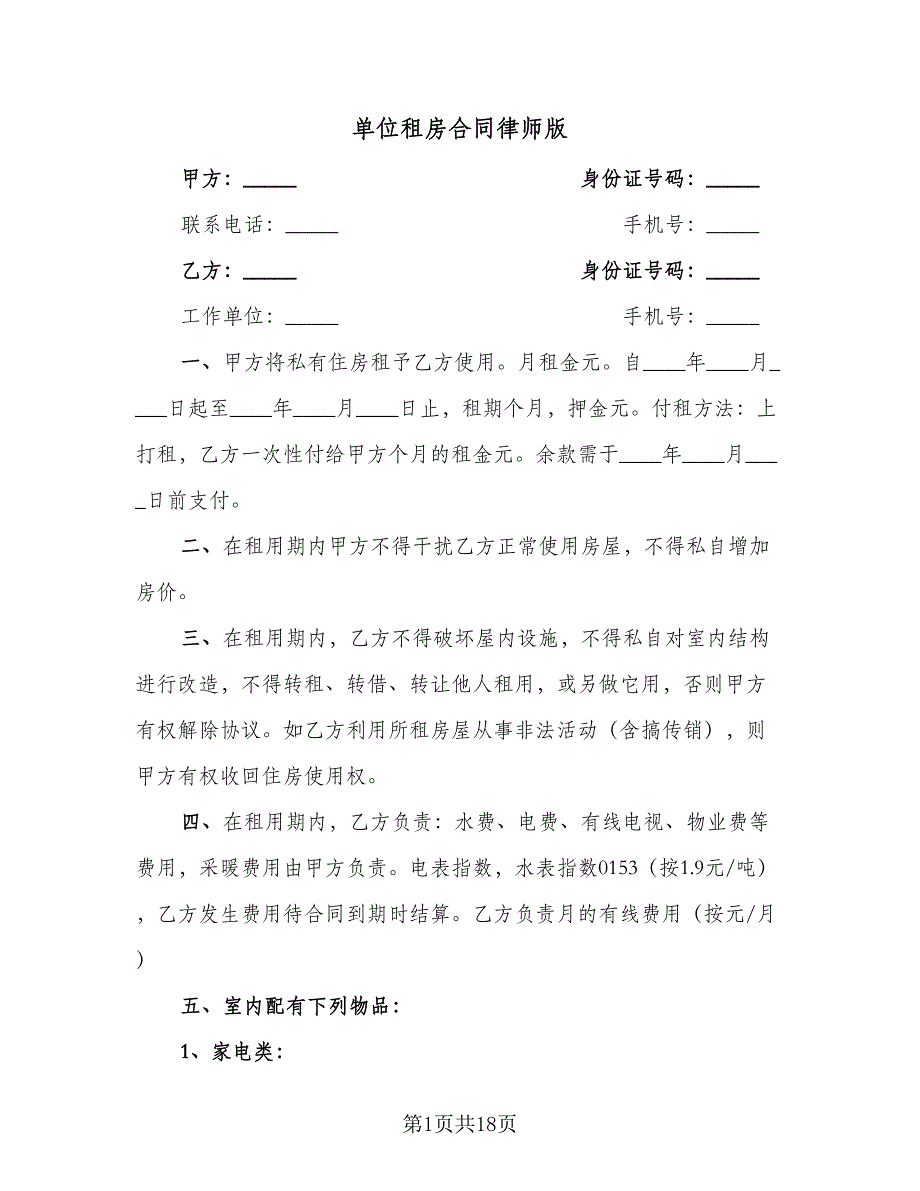 单位租房合同律师版
甲方：_____ 身份证号码：_____
联系电话：_____ 手机号：_____
乙方：_____ 身份证号码：_____
工作单位：_____ 手机号：_____
一、甲方将私有住房租予乙方使用。月租金元。自____年____月_
___日起至____年____月____日止，租期个月，押金元。付租方法：上
打租，乙方一次性付给甲方个月的租金元。余款需于____年____月___
_日前支付。
二、在租用期内甲方不得干扰乙方正常使用房屋，不得私自增加
房价。
三、在租用期内，乙方不得破坏屋内设施，不得私自对室内结构
进行改造，不得转租、转借、转让他人租用，或另做它用，否则甲方
有权解除协议。如乙方利用所租房屋从事非法活动（含搞传销），则
甲方有权收回住房使用权。
四、在租用期内，乙方负责：水费、电费、有线电视、物业费等
费用，采暖费用由甲方负责。电表指数，水表指数0153（按1.9元/吨）
，乙方发生费用待合同到期时结算。乙方负责月的有线费用（按元/月
）
五、室内配有下列物品：
1、家电类：
第1页共18页